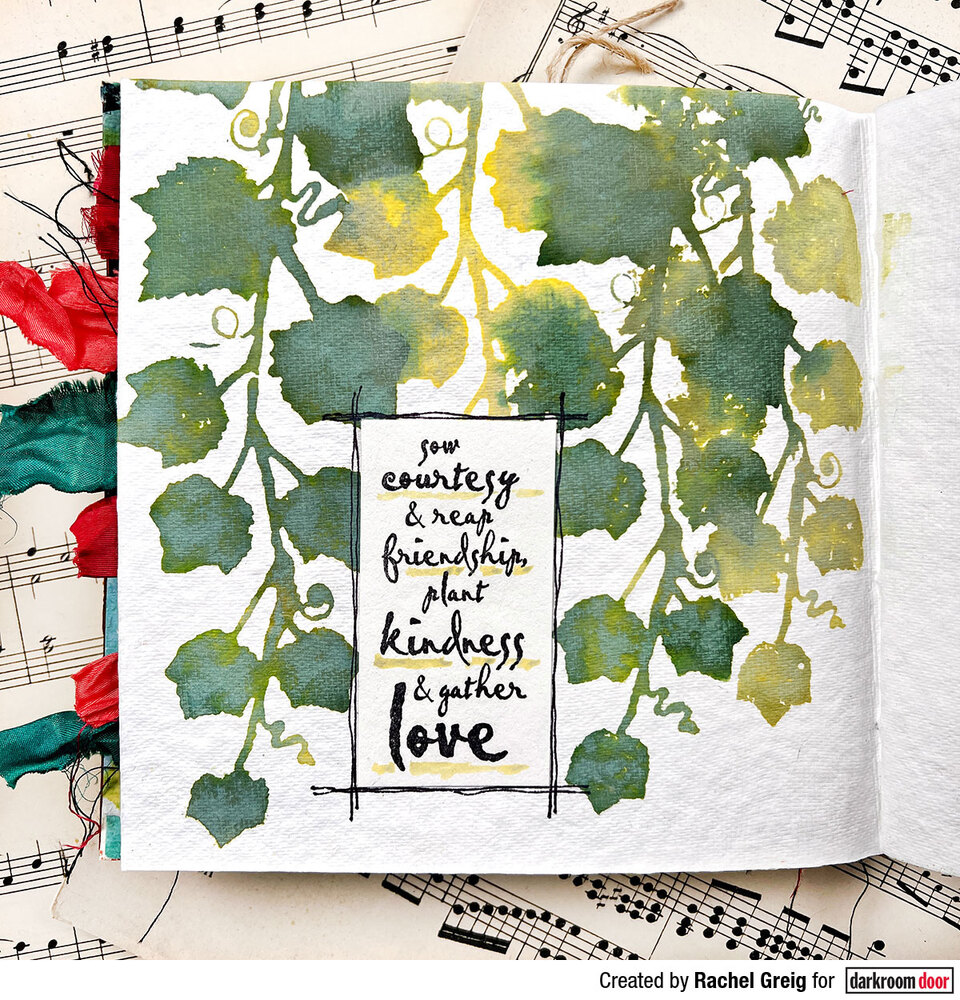 sow
courtesy
& reap
friendship,
plant
kindness
& gather
love
Created by Rachel Greig for darkroom door